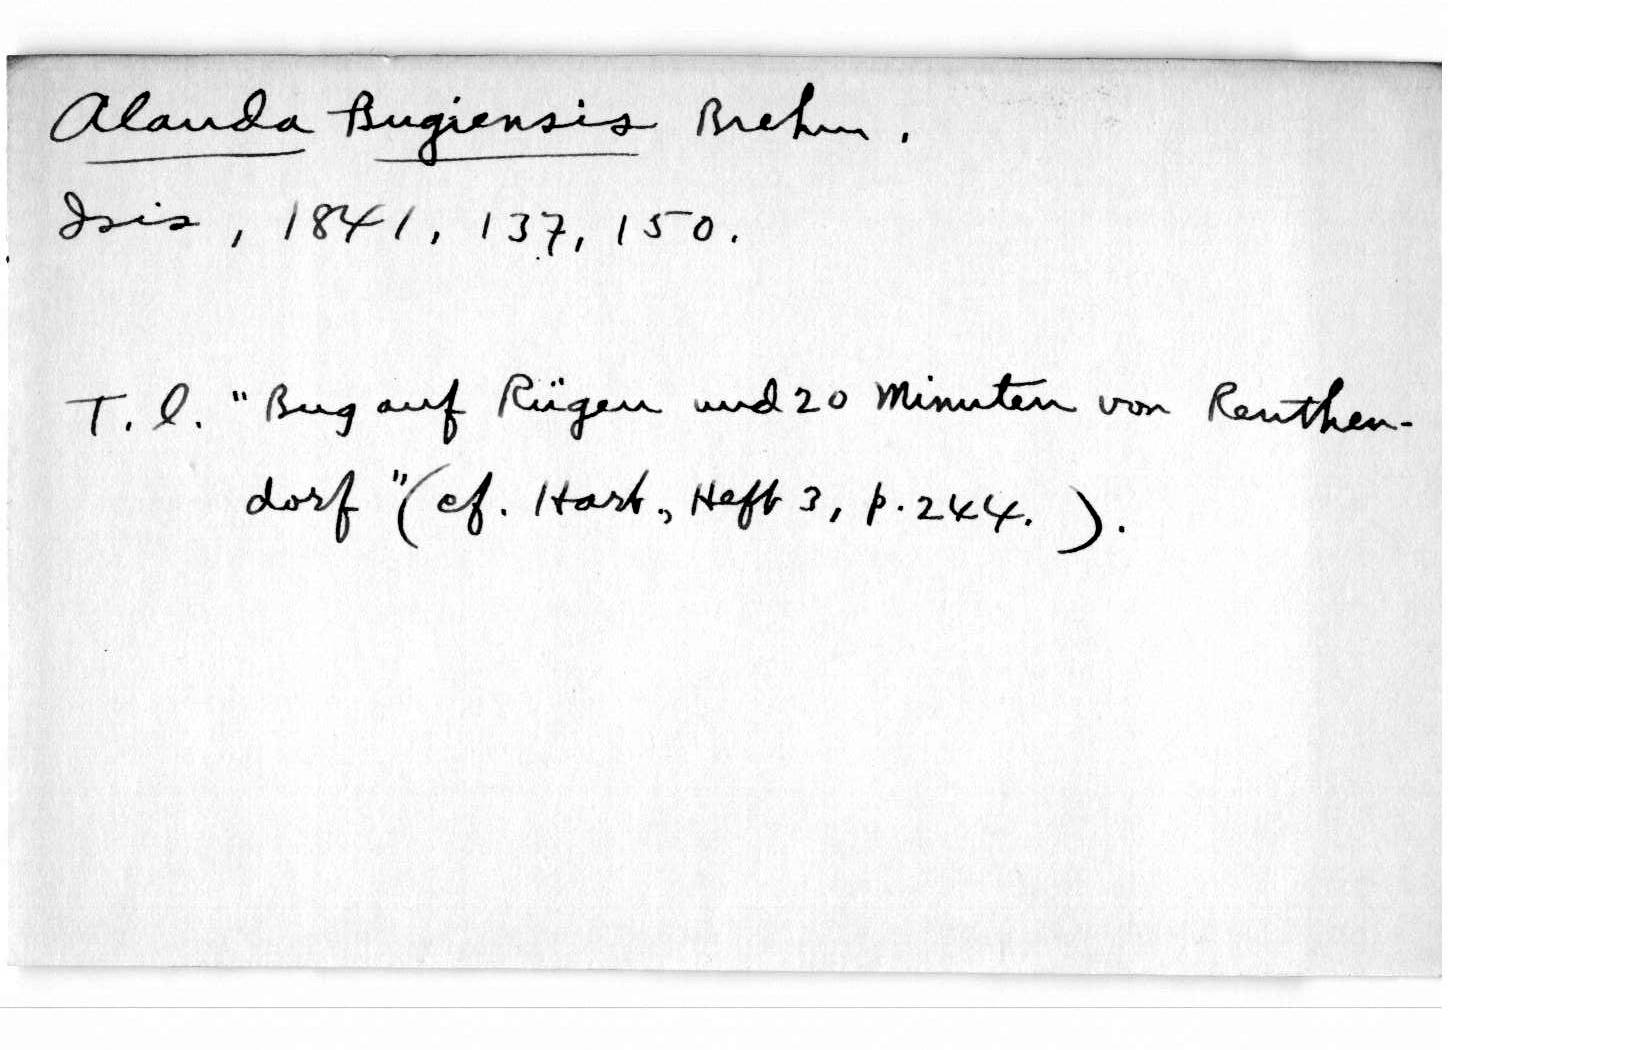 Alauda Bugiensis Brehm.
Isis, 1841, 137, 150.
T. l. "Bug auf Rügen und 20 Minuten von Renthen-
dorf" (cf. Hart., Heft 3, p. 244.).